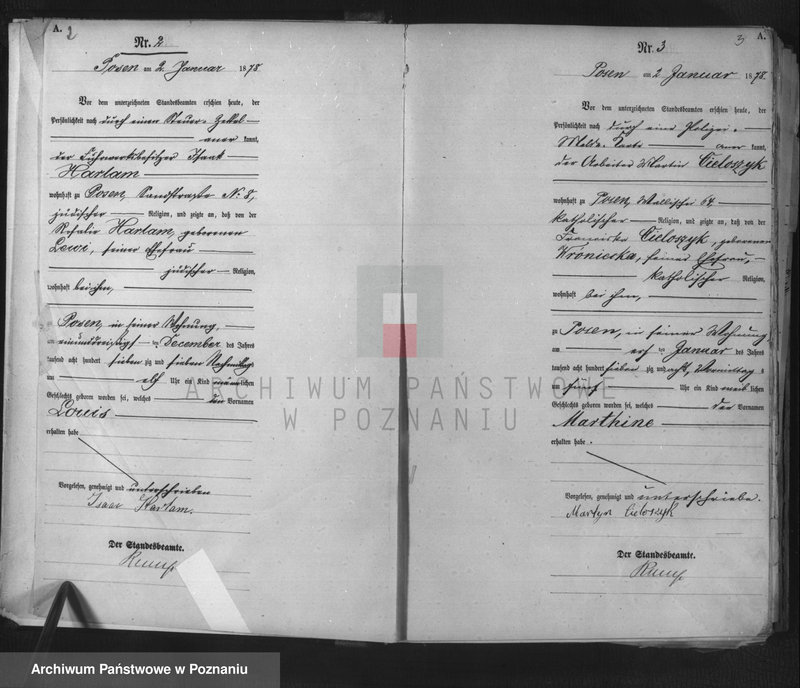 A.
2
Nr. 2
Posen am 2. Januar 1878
Vor dem unterzeichneten Standesbeamten erschien heute, der
Persönlichkeit nach durch einen Steuer-Zettel
aner kannt,
der Fuhrwerksbesitzer Isaak
Harlam
wohnhaft zu Posen, Sandstraße No 8,
jüdischer Religion, und zeigte an, daß von der
Rosalie Harlam, geborenen
Lewi, seiner Ehefrau
jüdischer Religion,
wohnhaft bei ihm,
zu Posen, in seiner Wohnung,
am einunddreißigsten December des Jahres
tausend acht hundert sieben zig und sieben Nachmittags
um elf Uhr ein Kind männlichen
Geschlechts geboren worden sei, welches den Vornamen
Louis
erhalten habe
Vorgelesen, genehmigt und unterschrieben
Isaac Harlam.
Der Standesbeamte.
Nr. 3
3
A.
Posen am 2 Januar 1878.
Vor dem unterzeichneten Standesbeamten erschien heute, der
Persönlichkeit nach durch eine Polizei-
Melde-Karte aner kannt,
der Arbeiter Martin Cieloszyk
wohnhaft zu Posen, Wallischei 64
katholischer Religion, und zeigte an, daß von der
Franciska Cieloszyk, geborenen
Wroniecka, seiner Ehefrau,
katholischer Religion,
wohnhaft bei ihm,
zu Posen, in seiner Wohnung
am ersten Januar des Jahres
tausend acht hundert sieben zig und acht, Vormittags
um fünf Uhr ein Kind weiblichen
Geschlechts geboren worden sei, welches den Vornamen
Marthine
erhalten habe.
Vorgelesen, genehmigt und unterschrieben.
Martyn Cieloszyk
Der Standesbeamte.
ARCHIWUM PAŃSTWOWE
W POZNANIU
Archiwum Państwowe w Poznaniu